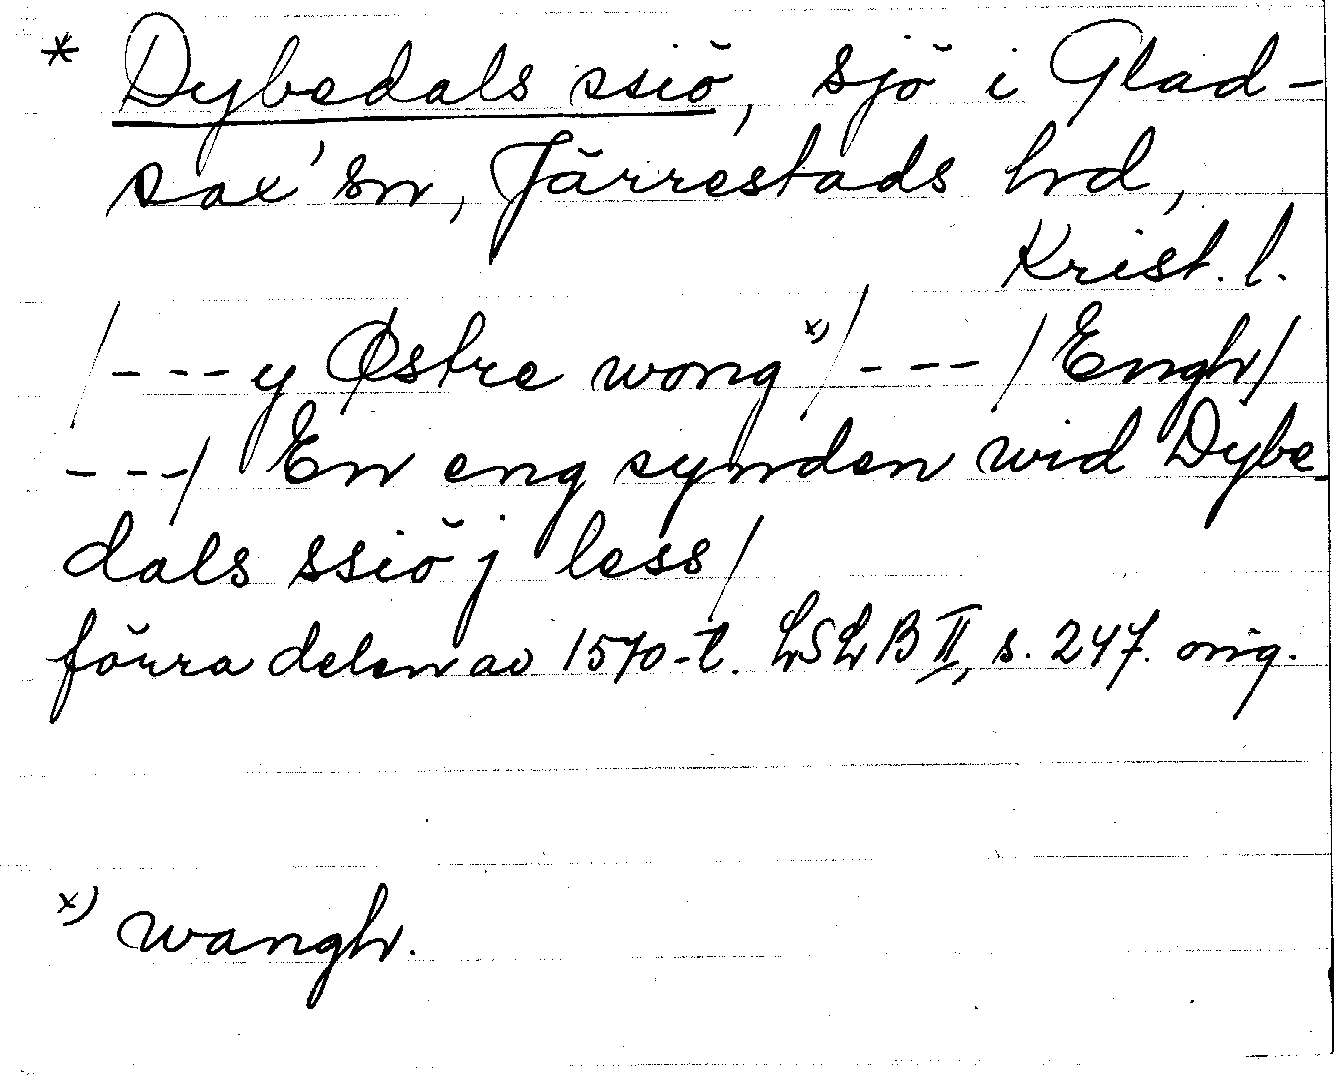 * Dybedals ssiö, sjö i Glad-
sax' sn, Järrestads hrd,
Krist. l.
/---y Østre wong x)/ --- / Engh/
---/ En eng synden wid Dybe-
dals ssiö j less/
förra delen av 1570-t. LSLB II, s. 247. orig.
x) wangh.